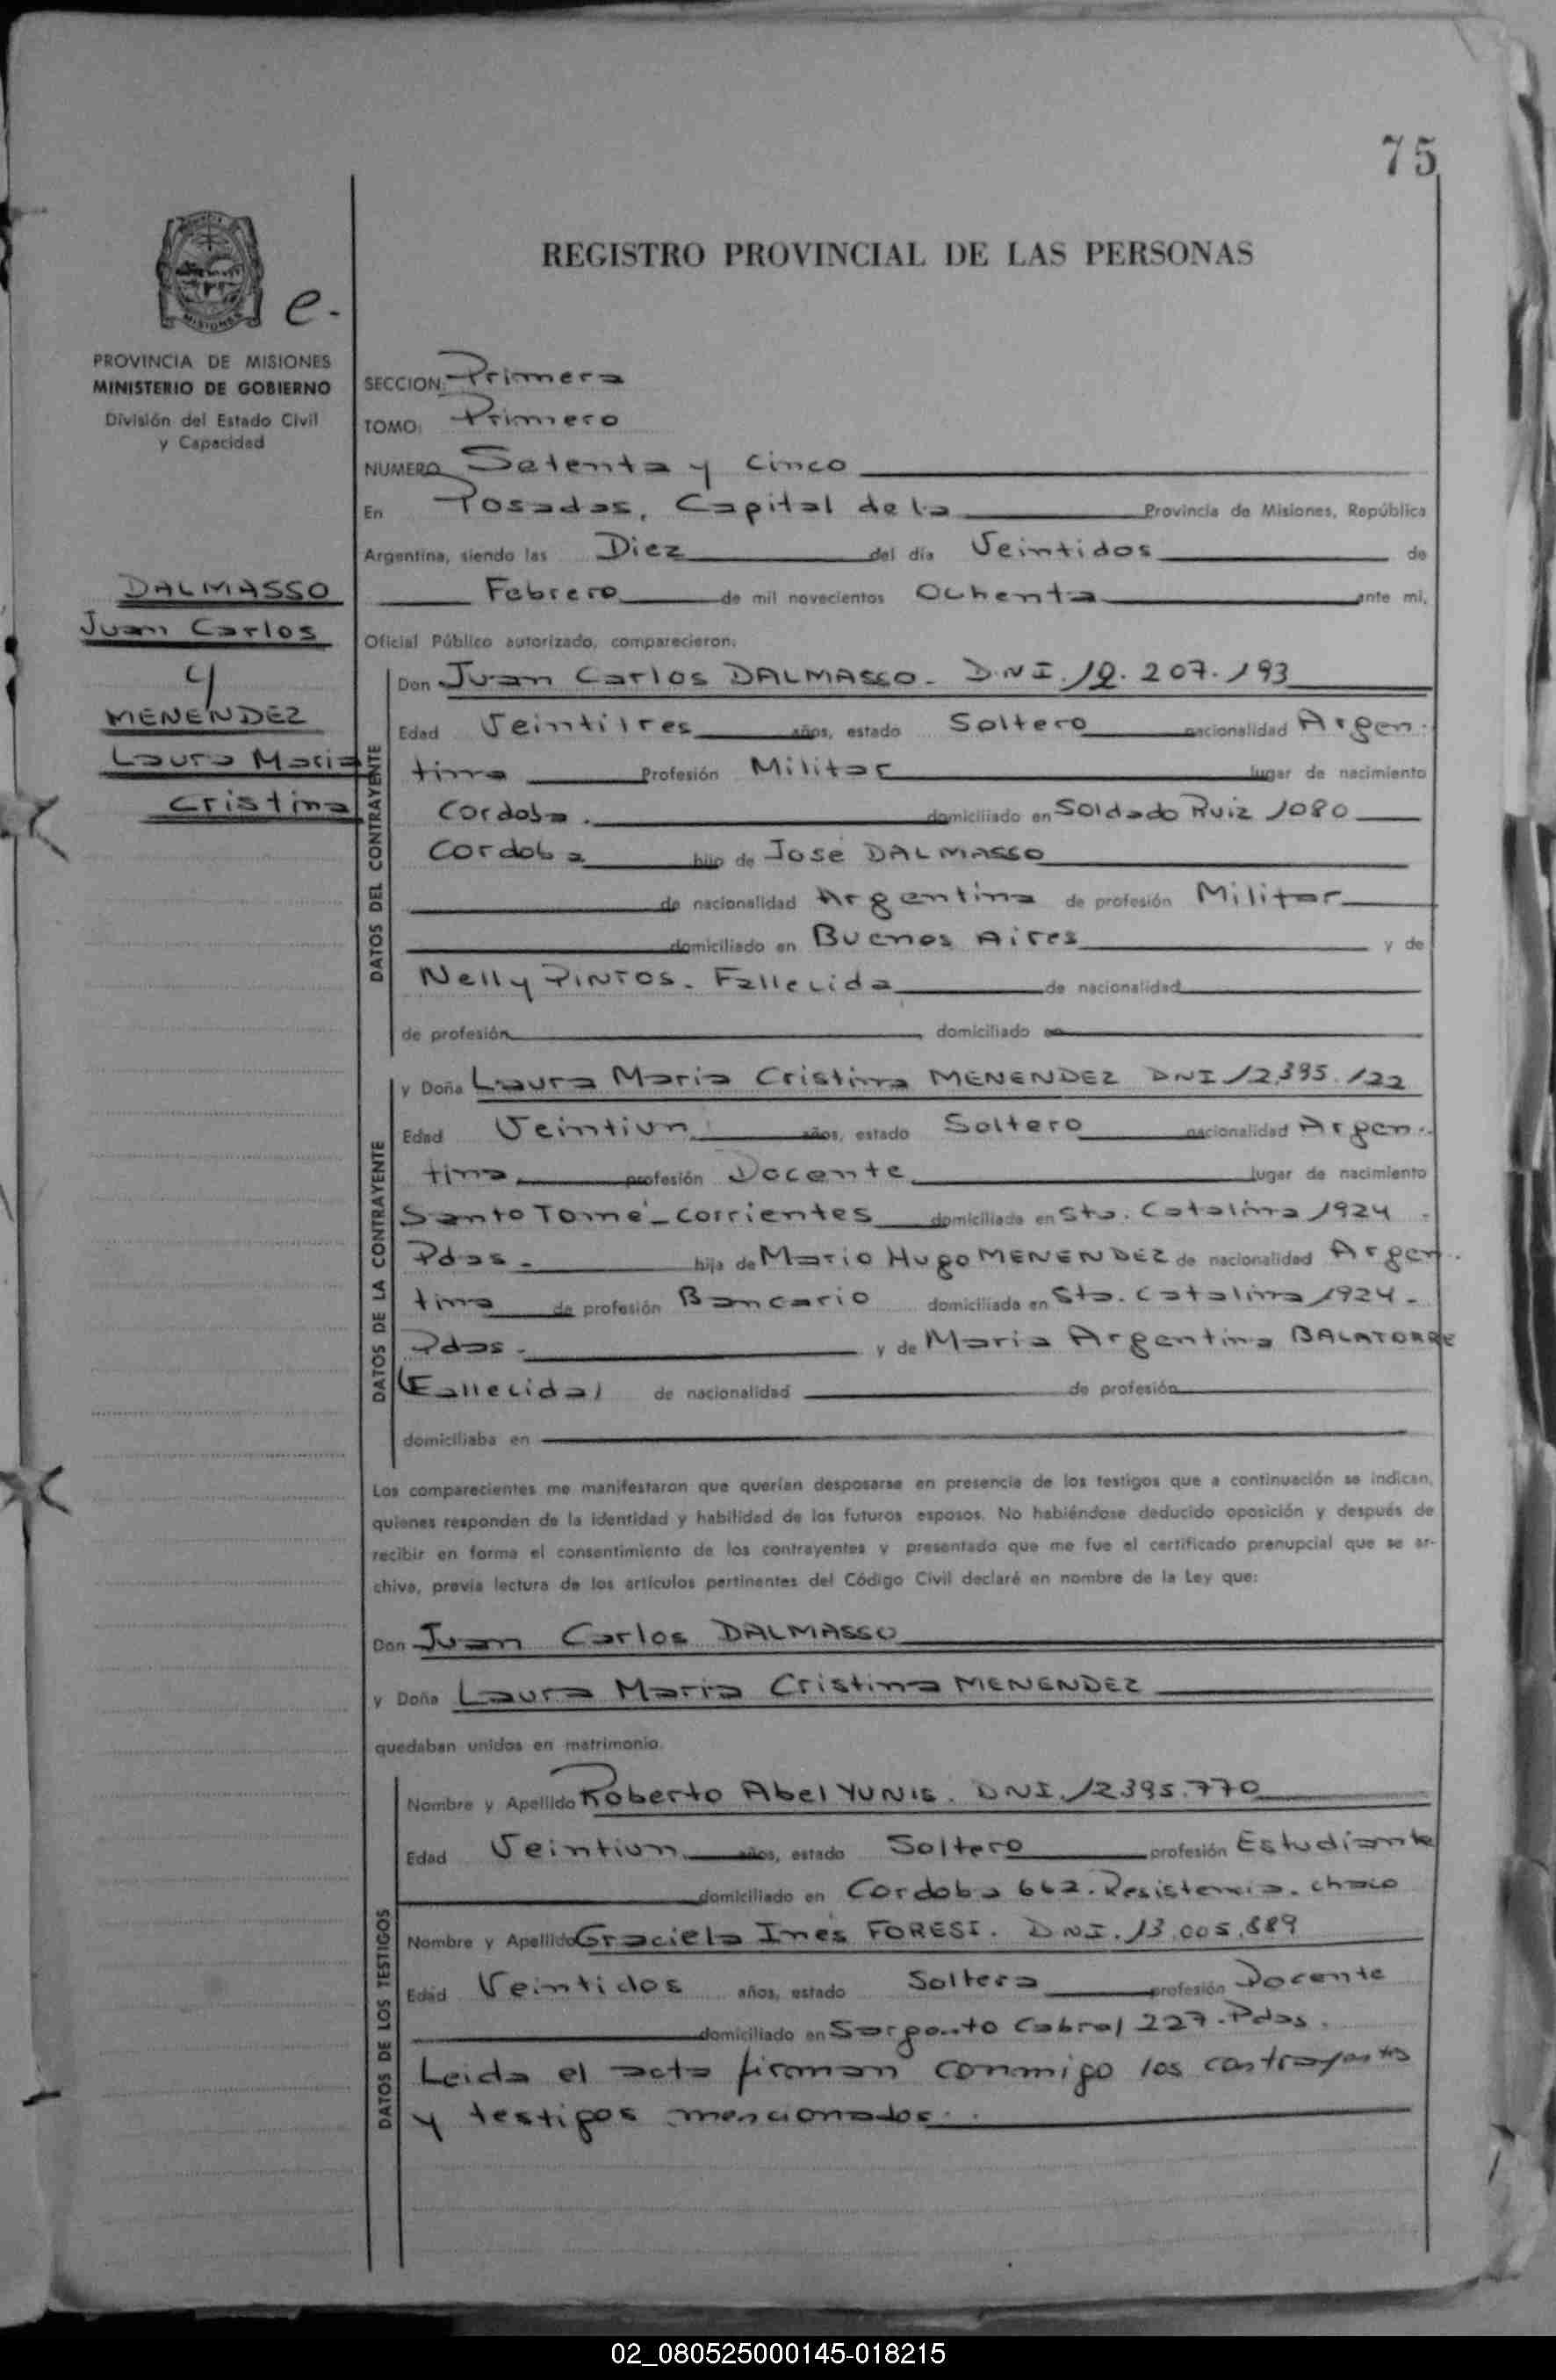 75
REGISTRO PROVINCIAL DE LAS PERSONAS
MISIONES
e.-
PROVINCIA DE MISIONES
MINISTERIO DE GOBIERNO
División del Estado Civil
y Capacidad
DALMASSO
Juan Carlos
y
MENENDEZ
Laura Maria
Cristina
SECCION: Primera
TOMO: Primero
NUMERO Setenta y cinco
En Posadas, Capital de la Provincia de Misiones, República
Argentina, siendo las Diez del día Veintidos de
Febrero de mil novecientos Ochenta ante mi,
Oficial Público autorizado, comparecieron:
DATOS DEL CONTRAYENTE
Don Juan Carlos DALMASSO - D.N.I. 207.193
Edad Veintitres años, estado Soltero nacionalidad Argen-
tina Profesión Militar lugar de nacimiento
Cordoba. domiciliado en Soldado Ruiz 1080
Cordoba hijo de José DALMASSO
de nacionalidad Argentina de profesión Militar
domiciliado en Buenos Aires y de
Nelly PINTOS. Fallecida de nacionalidad
de profesión domiciliado en
DATOS DE LA CONTRAYENTE
y Doña Laura Maria Cristina MENENDEZ DNI 12.395.122
Edad Veintiun años, estado Soltero nacionalidad Argen-
tina profesión Docente lugar de nacimiento
Santo Tomé - Corrientes domiciliada en Sta. Catalina 1924 -
Pdas - hija de Mario Hugo MENENDEZ de nacionalidad Argen-
tina de profesión Bancario domiciliada en Sta. Catalina 1924 -
Pdas - y de Maria Argentina BALATORRE
(Fallecida) de nacionalidad de profesión
domiciliaba en
Los comparecientes me manifestaron que querían desposarse en presencia de los testigos que a continuación se indican,
quienes responden de la identidad y habilidad de los futuros esposos. No habiéndose deducido oposición y después de
recibir en forma el consentimiento de los contrayentes y presentado que me fue el certificado prenupcial que se ar-
chiva, previa lectura de los artículos pertinentes del Código Civil declaré en nombre de la Ley que:
Don Juan Carlos DALMASSO
y Doña Laura Maria Cristina MENENDEZ
quedaban unidos en matrimonio.
DATOS DE LOS TESTIGOS
Nombre y Apellido Roberto Abel YUNIS. DNI. 12.395.770
Edad Veintiun años, estado Soltero profesión Estudiante
domiciliado en Cordoba 662. Resistencia. Chaco
Nombre y Apellido Graciela Inés FORESI. DNI. 13.005.889
Edad Veintidos años, estado Soltera profesión Docente
domiciliado en Sargento Cabral 227. Pdas.
Leida el acta firman conmigo los contrayentes
y testigos mencionados.-
02_080525000145-018215